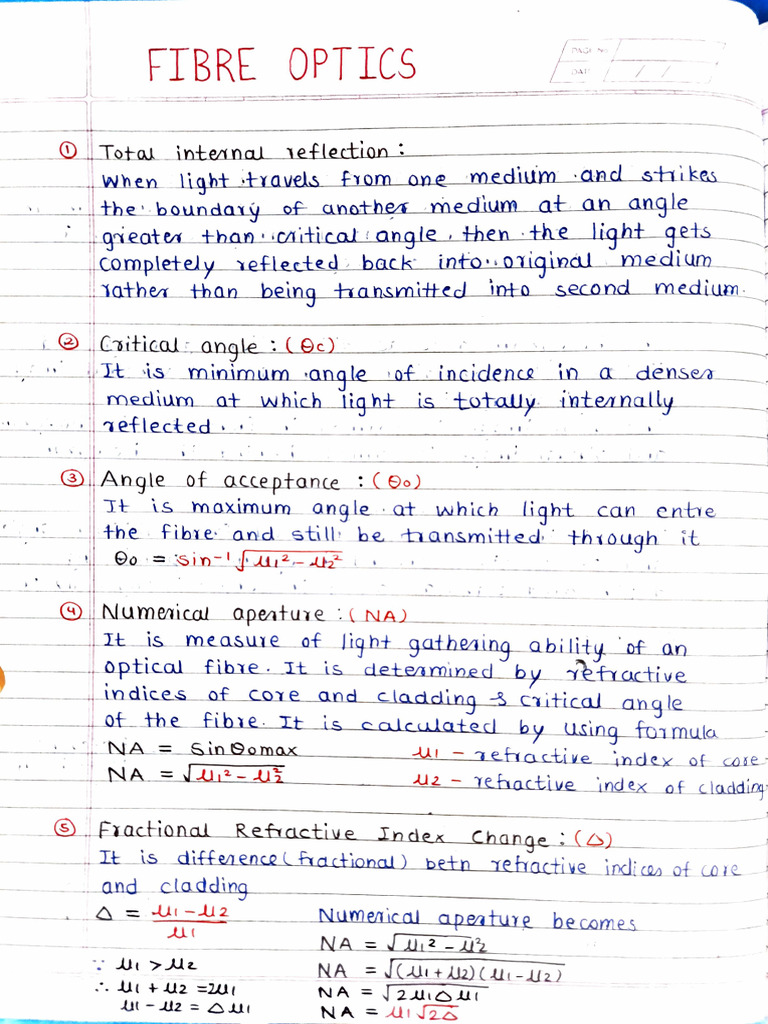 FIBRE OPTICS
PAGE No.
DATE / /
① Total internal reflection :
When light travels from one medium and strikes
the boundary of another medium at an angle
greater than critical angle then the light gets
completely reflected back into original medium
rather than being transmitted into second medium.
② Critical angle : (θc)
It is minimum angle of incidence in a denser
medium at which light is totally internally
reflected.
③ Angle of acceptance : (θo)
It is maximum angle at which light can entre
the fibre and still be transmitted through it
θo = sin⁻¹√μ1² - μ2²
④ Numerical aperture : (NA)
It is measure of light gathering ability of an
optical fibre. It is determined by refractive
indices of core and cladding & critical angle
of the fibre. It is calculated by using formula
NA = sinθomax μ1 - refractive index of core
NA = √μ1² - μ2² μ2 - refractive index of cladding
⑤ Fractional Refractive Index Change : (Δ)
It is difference (fractional) betn refractive indices of core
and cladding
Δ = μ1 - μ2 / μ1
∵ μ1 > μ2
∴ μ1 + μ2 = 2μ1
μ1 - μ2 = Δ μ1
Numerical aperture becomes
NA = √μ1² - μ2²
NA = √(μ1 + μ2) (μ1 - μ2)
NA = √2μ1 Δ μ1
NA = μ1√2Δ